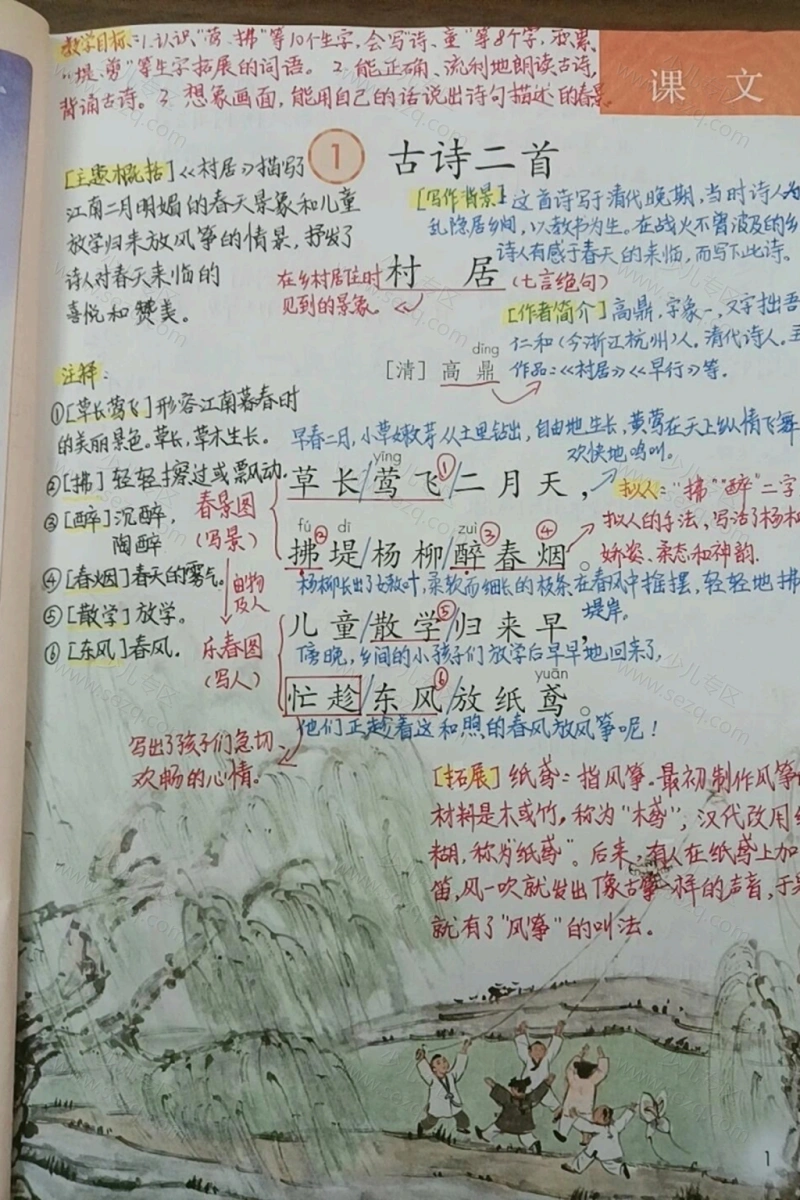 教学目标:1.认识“莺、拂”等10个生字,会写“诗、童”等8个字,积累
“堤、剪”等生字拓展的词语。2.能正确、流利地朗读古诗,
背诵古诗。3.想象画面,能用自己的话说出诗句描述的春景
课文
1 古诗二首
[主题概括]《村居》描写
江南二月明媚的春天景象和儿童
放学归来放风筝的情景,抒发了
诗人对春天来临的
喜悦和赞美。
[写作背景]这首诗写于清代晚期,当时诗人为
乱隐居乡间,以教书为生。在战火不曾波及的乡
诗人有感于春天的来临,而写下此诗。
在乡村居住时
见到的景象。
村居
(七言绝句)
[作者简介]高鼎,字象一,又字拙吾
仁和(今浙江杭州)人。清代诗人。主
作品:《村居》《早行》等。
dǐng
[清]高鼎
注释:
①[草长莺飞]形容江南暮春时
的美丽景色。草长,草木生长。
②[拂]轻轻擦过或飘动.
③[醉]沉醉,
陶醉
④[春烟]春天的雾气。
⑤[散学]放学。
⑥[东风]春风.
早春二月,小草嫩芽从土里钻出,自由地生长,黄莺在天上纵情飞舞
欢快地鸣叫。
yīng
草长/莺飞①/二月天,
春景图
(写景)
由物
及人
乐春图
(写人)
拟人:“拂”“醉”二字
拟人的手法,写活了杨柳
娇姿、柔态和神韵.
fú dī zuì
拂②堤/杨柳/醉③春烟④。
杨柳长出了嫩叶,柔软而细长的枝条在春风中摇摆,轻轻地拂
堤岸。
儿童/散学⑤/归来早,
傍晚,乡间的小孩子们放学后早早地回来了,
yuān
忙趁/东风⑥/放纸鸢。
他们正趁着这和照的春风放风筝呢!
写出了孩子们急切、
欢畅的心情。
[拓展]纸鸢:指风筝。最初制作风筝
材料是木或竹,称为“木鸢”,汉代改用纸
糊,称为“纸鸢”。后来,有人在纸鸢上加
笛,风一吹就发出像古筝一样的声音,于是
就有了“风筝”的叫法。
1